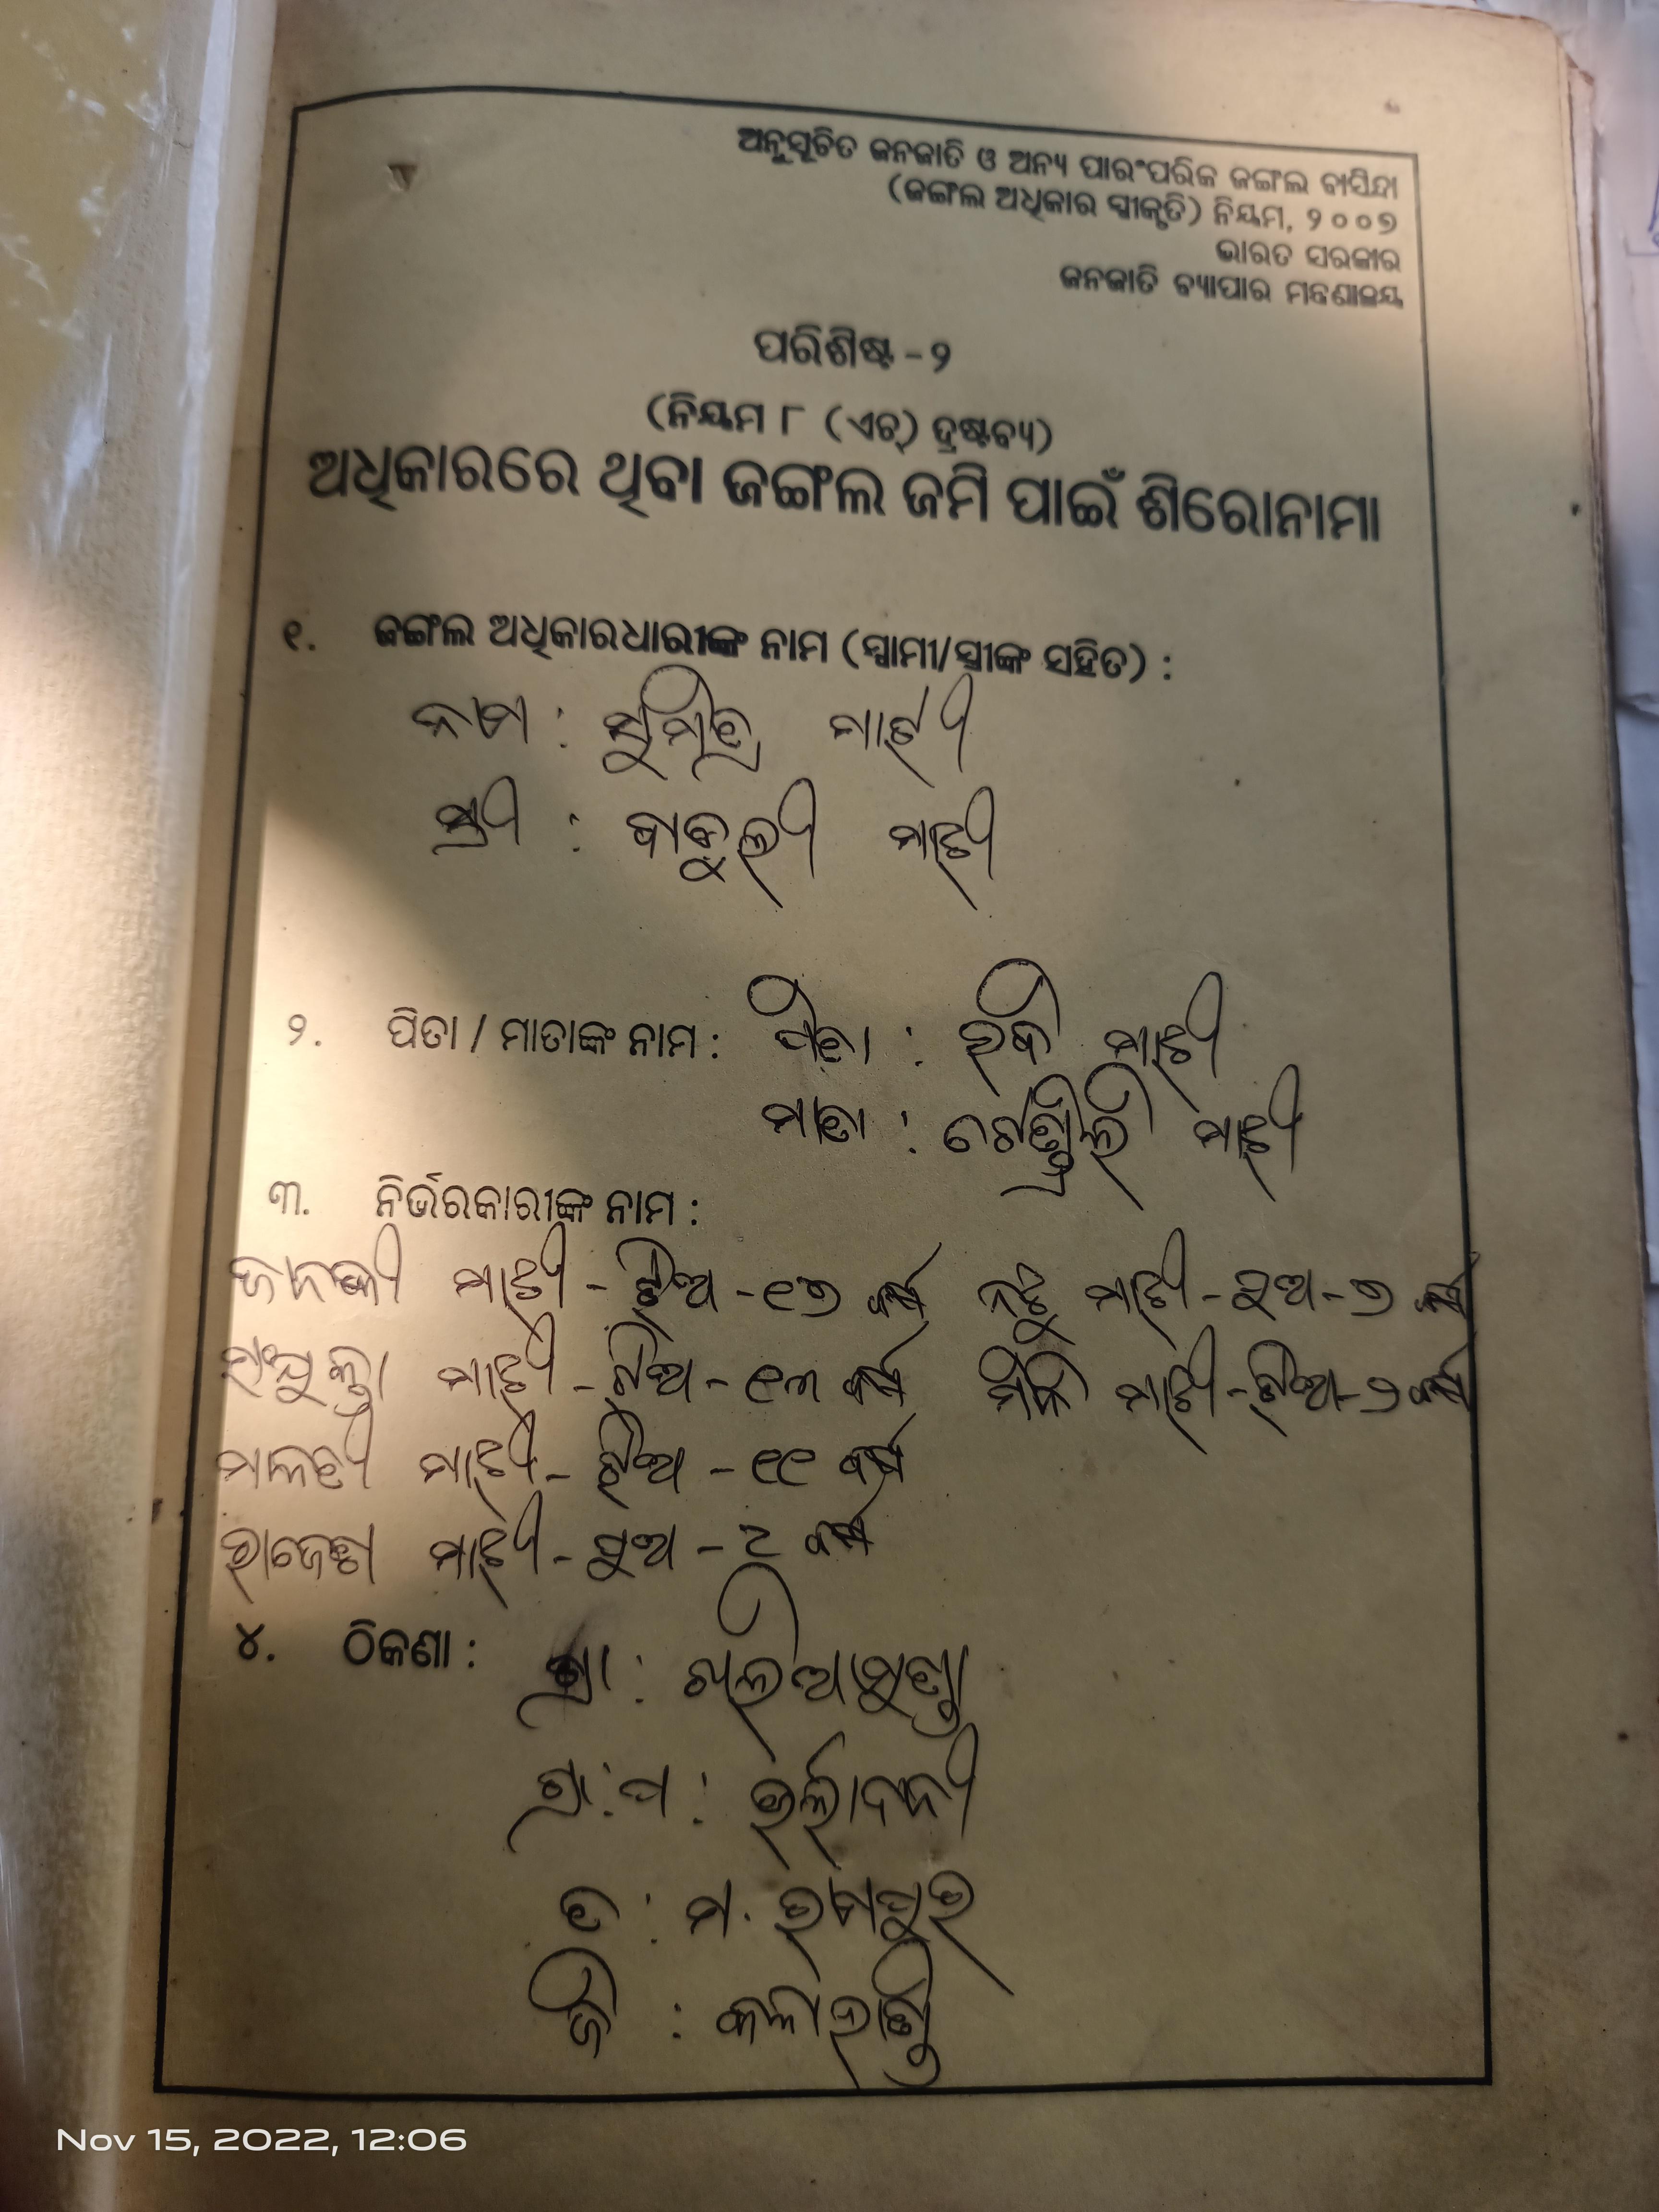 ଅନୁସୂଚିତ ଜନଜାତି ଓ ଅନ୍ୟ ପାରଂପରିକ ଜଙ୍ଗଲ ବାସିନ୍ଦା
(ଜଙ୍ଗଲ ଅଧିକାର ସ୍ୱୀକୃତି) ନିୟମ, ୨୦୦୭
ଭାରତ ସରକାର
ଜନଜାତି ବ୍ୟାପାର ମନ୍ତ୍ରଣାଳୟ
ପରିଶିଷ୍ଟ - ୨
(ନିୟମ ୮ (ଏଚ୍) ଦ୍ରଷ୍ଟବ୍ୟ)
ଅଧିକାରରେ ଥିବା ଜଙ୍ଗଲ ଜମି ପାଇଁ ଶିରୋନାମା
୧. ଜଙ୍ଗଲ ଅଧିକାରଧାରୀଙ୍କ ନାମ (ସ୍ୱାମୀ/ସ୍ତ୍ରୀଙ୍କ ସହିତ) :
ନାମ : ସୁମିତ୍ର ମାଝୀ
ସ୍ତ୍ରୀ : ବାବୁଲୀ ମାଝୀ
୨. ପିତା / ମାତାଙ୍କ ନାମ : ପିତା : ରବି ମାଝୀ
ମାତା : ମାଝୀ
୩. ନିର୍ଭରକାରୀଙ୍କ ନାମ :
ଜାନକୀ ମାଝୀ - ଝିଅ - ୧୭ ବର୍ଷ ମାଝୀ - ପୁଅ - ୭ ବର୍ଷ
ମାଝୀ - ଝିଅ - ୧୩ ବର୍ଷ ମିନି ମାଝୀ - ଝିଅ - ବର୍ଷ
ମାଳତୀ ମାଝୀ - ଝିଅ - ୧୧ ବର୍ଷ
ରାଜେଶ ମାଝୀ - ପୁଅ - ବର୍ଷ
୪. ଠିକଣା : ଗ୍ରା : ଖଲିଆମୁଣ୍ଡା
ଗ୍ରା : ପ : ଉର୍ଲାଦାନୀ
ତ : ମ. ରାମପୁର
ଜି : କଳାହାଣ୍ଡି
Nov 15, 2022, 12:06